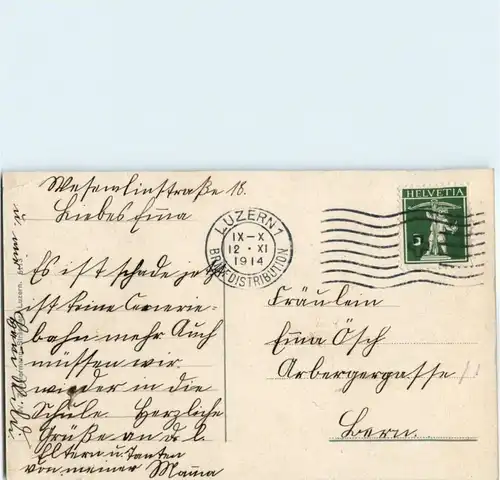 Wesemlinstraße 18.
Liebes Ema
Es ist schade jetzt
ist keine
bahn mehr Auch
müssen wir
wieder in die
Schule. Herzliche
Grüße an d. l.
Eltern u. Tanten
von meiner Mama
LUZERN 1
IX-X
12 · XI
1914
BRIEFDISTRIBUTION
HELVETIA
Fräulein
Ema Ösch
Arbergergasse
Bern.
Luzern.